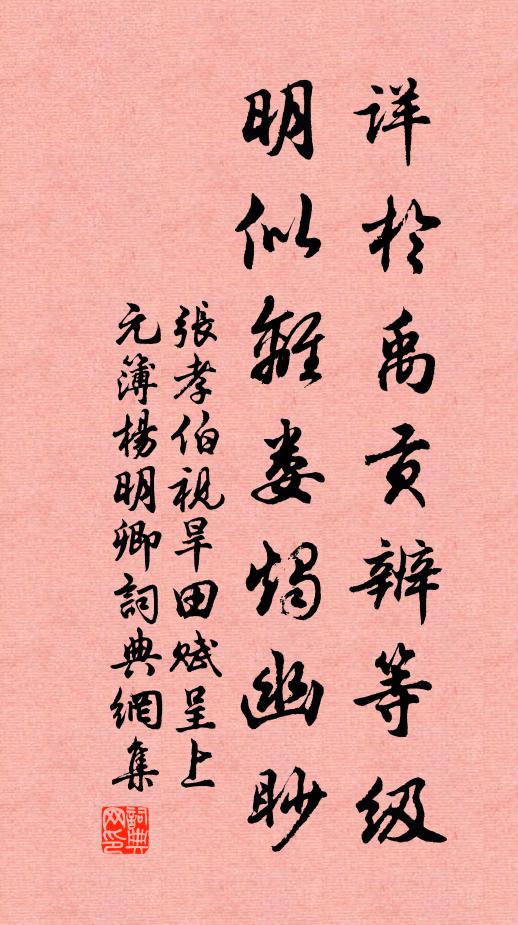 详於禹贡辨等级
明似離娄燭幽眇
張孝伯視旱田赋呈上
元簿楊明卿詞典網集
詞典网印